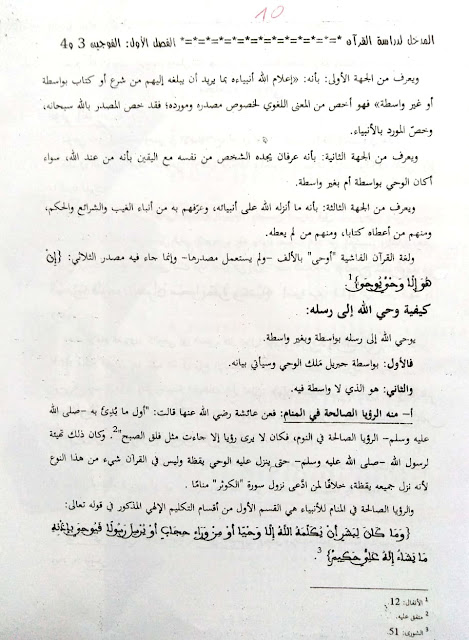 10
المدخل لدراسة القرآن *=*=*=*=*=*=*=*=*=*=*=*=* الفصل الأول: الفوجين 3 و4
ويعرف من الجهة الأولى: بأنه: «إعلام الله أنبياءه بما يريد أن يبلغه إليهم من شرع أو كتاب بواسطة
أو غير واسطة» فهو أخص من المعنى اللغوي لخصوص مصدره ومورده؛ فقد خص المصدر بالله سبحانه،
وخصّ المورد بالأنبياء.
ويعرف من الجهة الثانية: بأنه عرفان يجده الشخص من نفسه مع اليقين بأنه من عند الله، سواء
أكان الوحي بواسطة أم بغير واسطة.
ويعرف من الجهة الثالثة: بأنه ما أنزله الله على أنبيائه، وعرّفهم به من أنباء الغيب والشرائع والحكم،
ومنهم من أعطاه كتابا، ومنهم من لم يعطه.
ولغة القرآن الفاشية "أوحى" بالألف -ولم يستعمل مصدرها- وإنما جاء فيه مصدر الثلاثي: {إِنْ
هُوَ إِلَّا وَحْيٌ يُوحَى}1
كيفية وحي الله إلى رسله:
يوحي الله إلى رسله بواسطة وبغير واسطة.
فالأول: بواسطة جبريل مَلك الوحي وسيأتي بيانه.
والثاني: هو الذي لا واسطة فيه.
أ- منه الرؤيا الصالحة في المنام: فعن عائشة رضي الله عنها قالت: "أول ما بُدِئَ به -صلى الله
عليه وسلم- الرؤيا الصالحة في النوم، فكان لا يرى رؤيا إلا جاءت مثل فلق الصبح"2. وكان ذلك تهيئة
لرسول الله -صلى الله عليه وسلم- حتى ينزل عليه الوحي يقظة وليس في القرآن شيء من هذا النوع
لأنه نزل جميعه يقظة، خلافًا لمن ادَّعى نزول سورة "الكوثر" منامًا.
والرؤيا الصالحة في المنام للأنبياء هي القسم الأول من أقسام التكليم الإلهي المذكور في قوله تعالى:
{وَمَا كَانَ لِبَشَرٍ أَنْ يُكَلِّمَهُ اللَّهُ إِلَّا وَحْيًا أَوْ مِنْ وَرَاءِ حِجَابٍ أَوْ يُرْسِلَ رَسُولًا فَيُوحِيَ بِإِذْنِهِ
مَا يَشَاءُ إِنَّهُ عَلِيٌّ حَكِيمٌ}3.
1 الأنفال: 12.
2 متفق عليه.
3 الشورى: 51.